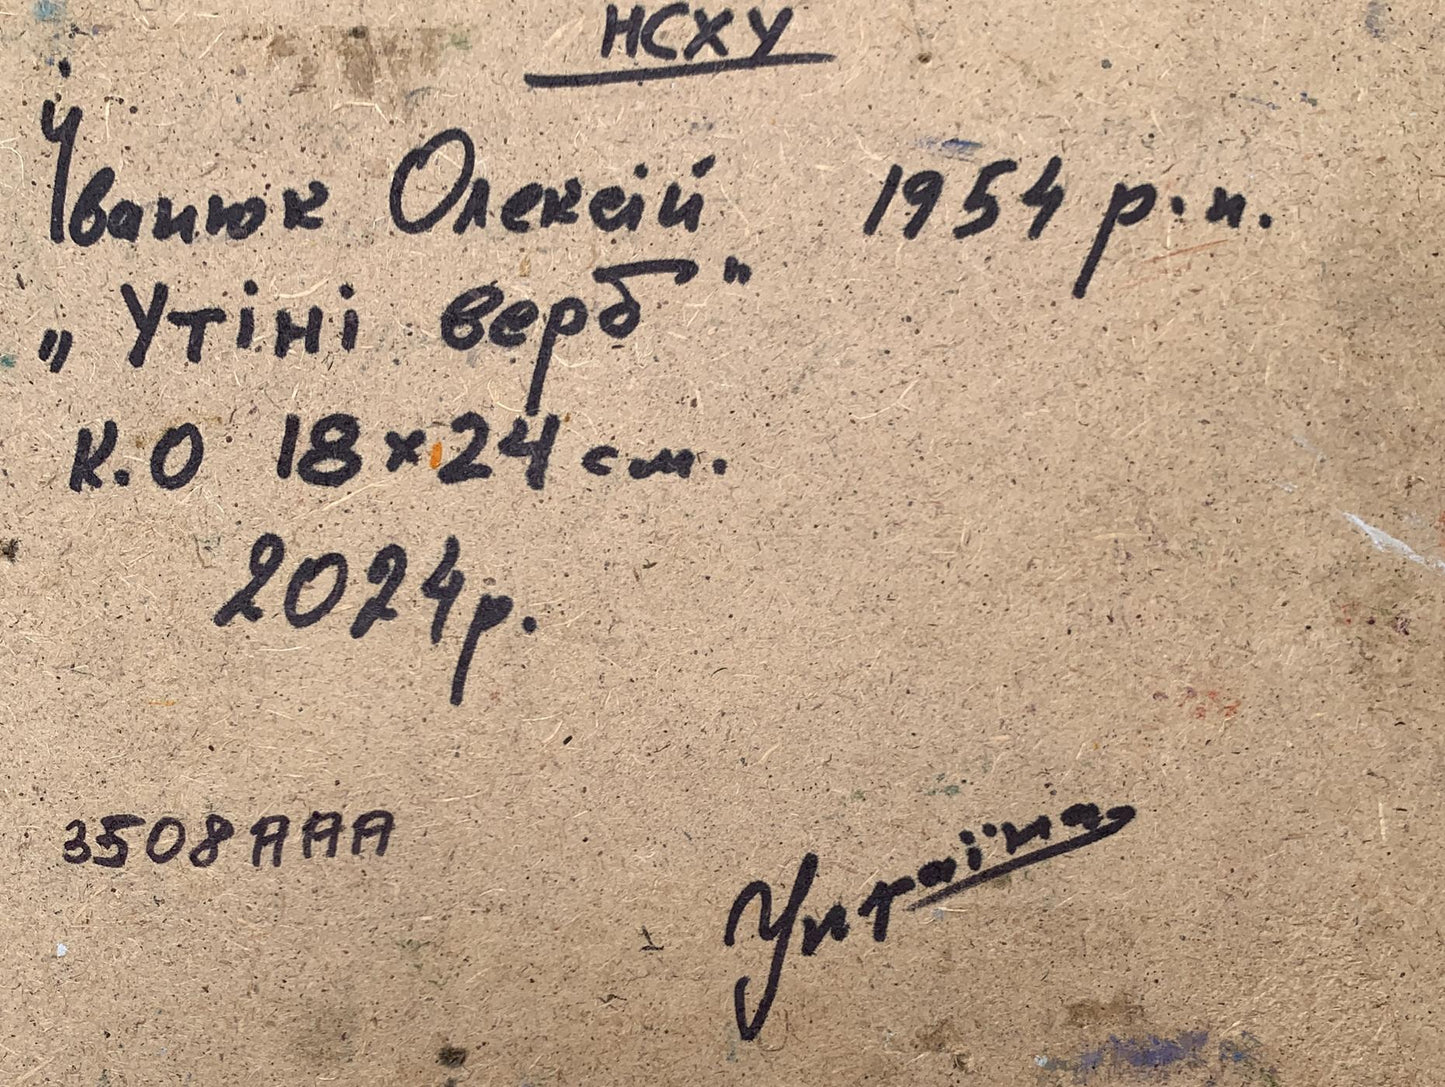 НСХУ
Іванюк Олексій 1954 р.н.
„Утіні верб"
К.О 18×24 см.
2024р.
3508ААА
Україна